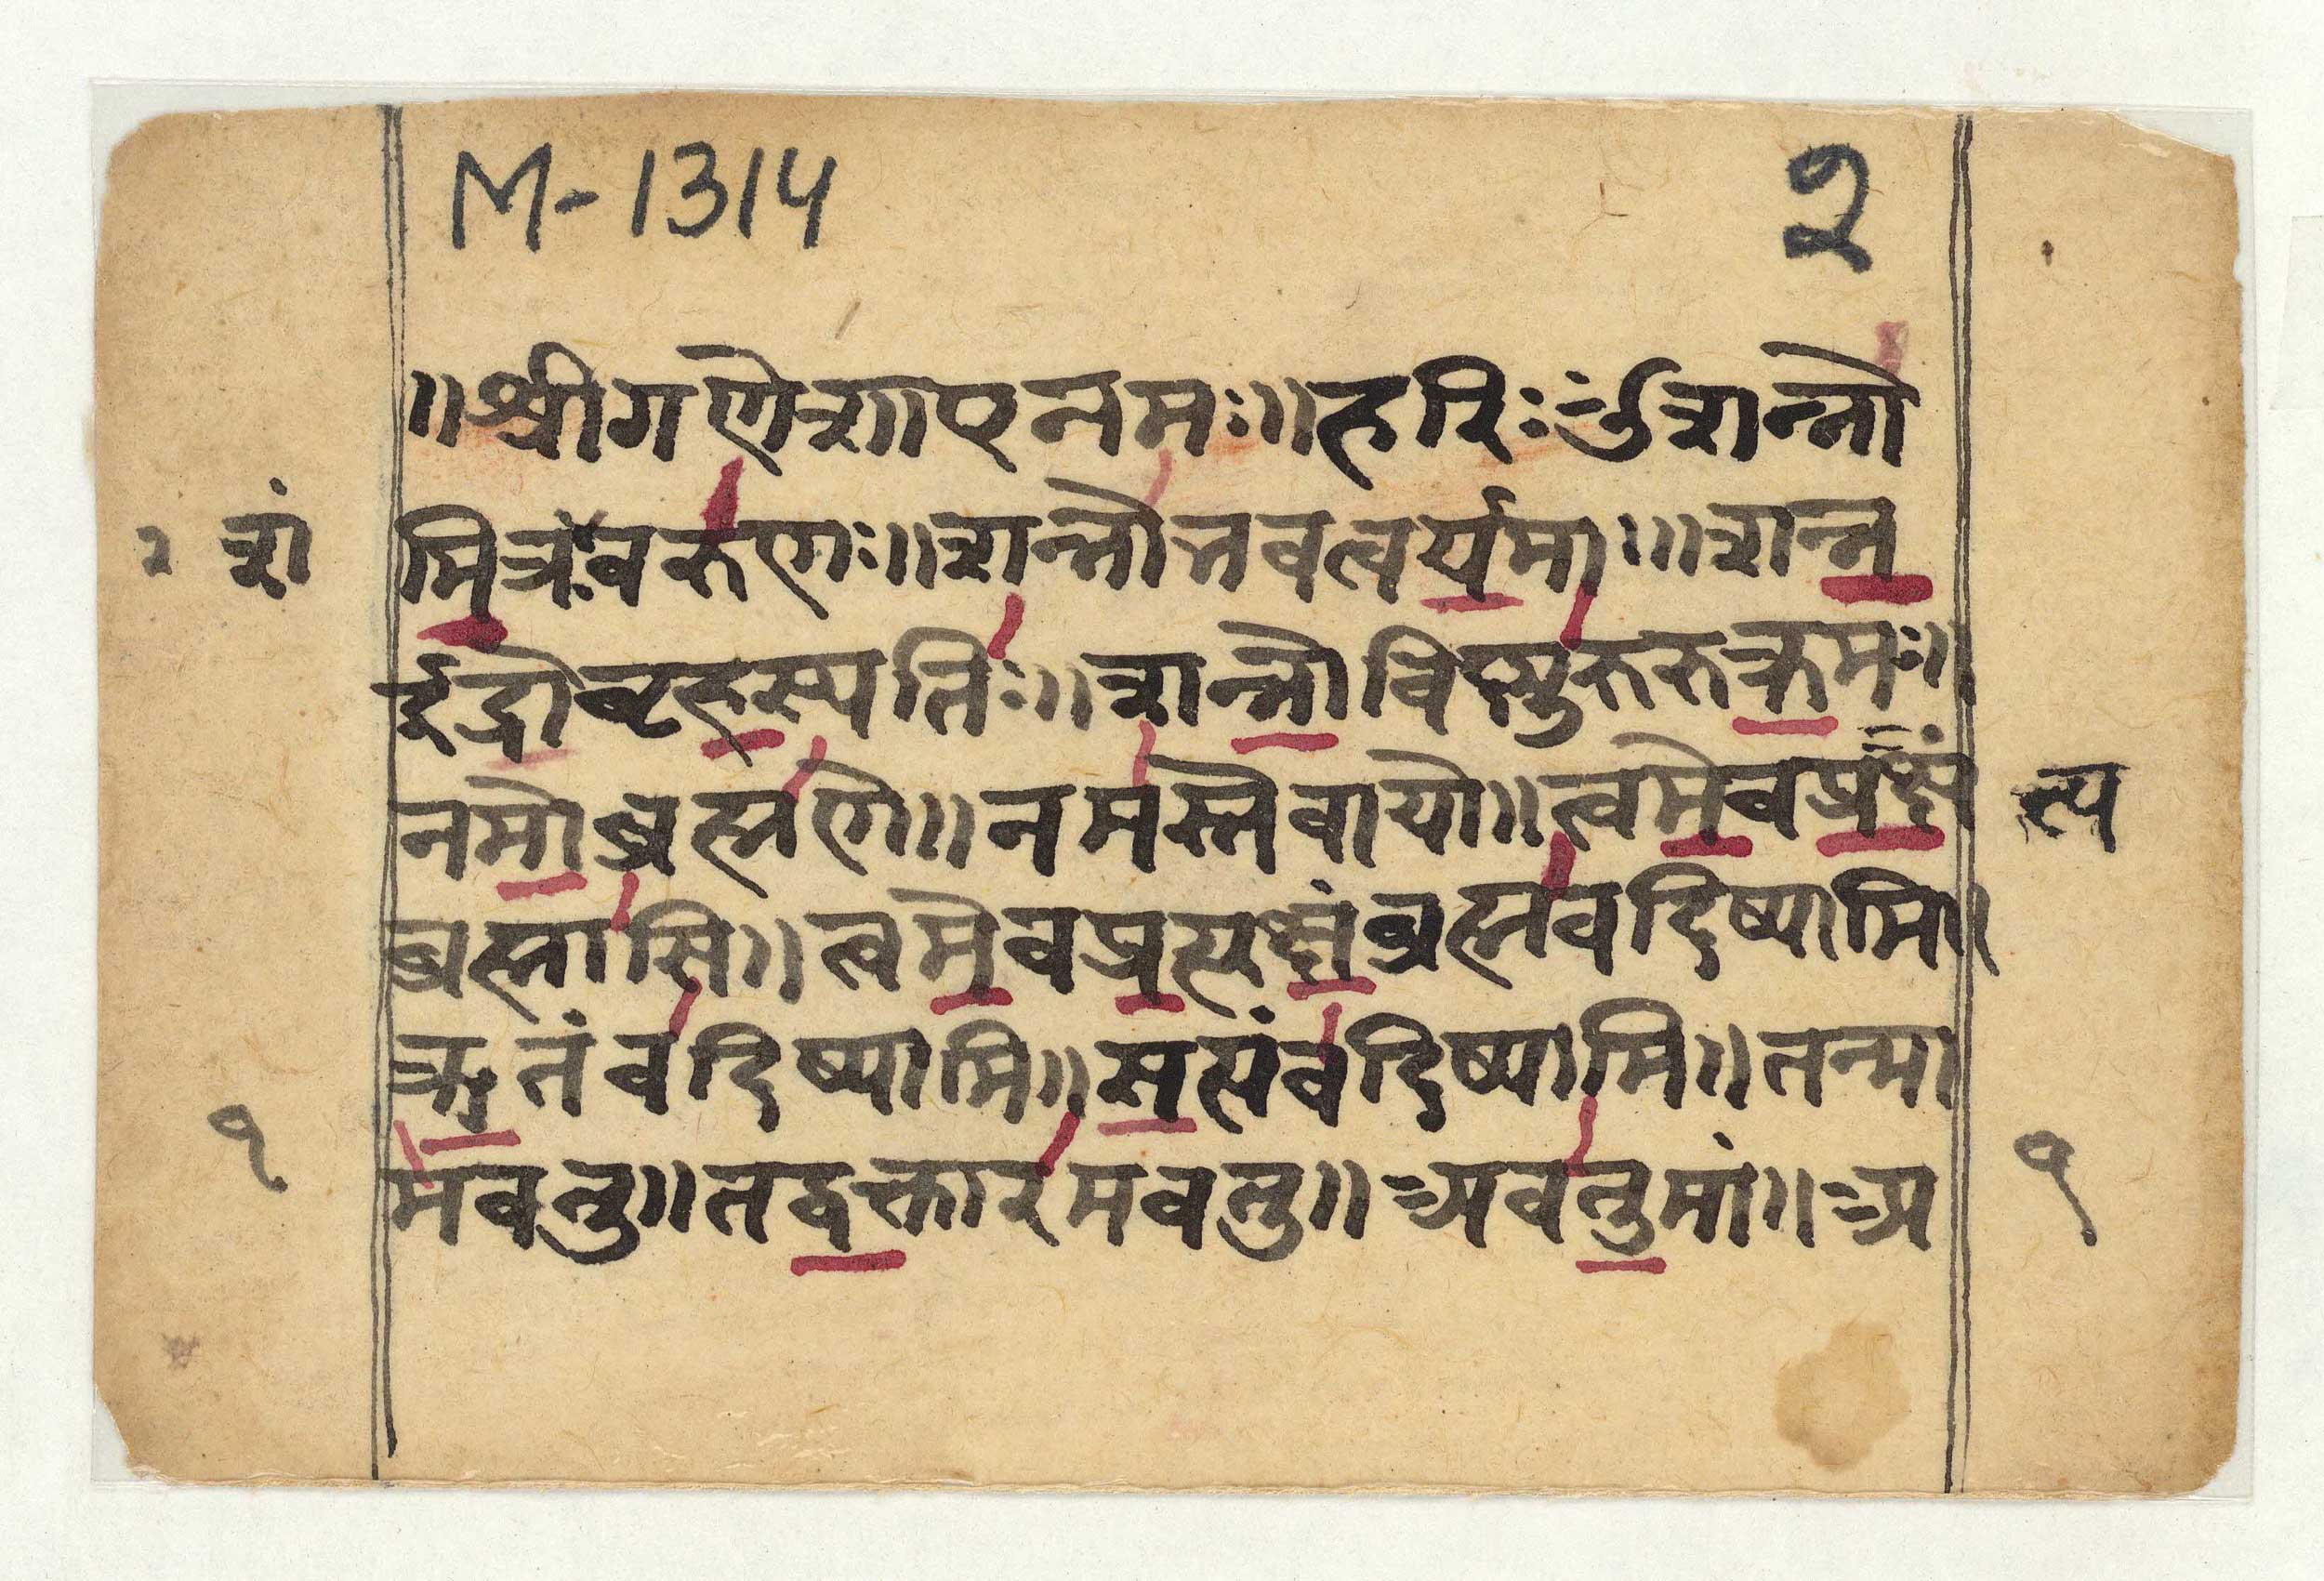 M-1314
२
॥श्रीगणेशाएनमः॥हरिःॐशन्नो
२ शं
मित्रःवरुणः॥शन्नोत्तवत्वर्यमाः॥शन्न
ईद्रोबृहस्पतिः॥शन्नोविष्णुरुरुक्रमः॥
नमोब्रह्मणे॥नमस्तेवायो॥त्वमेवप्रक्षं
त्य
ब्रह्मासि॥त्वमेवप्रत्यक्षंब्रह्मवदिष्यामि॥
ऋतंवदिष्यामि॥सत्यंवदिष्यामि॥तन्मा
मवतु॥तद्वक्तारमवतु॥अवतुमां॥अ
१
१